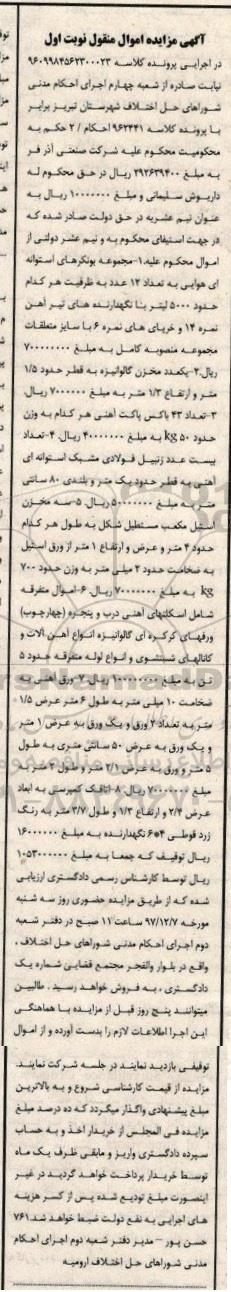 آگهی مزایده اموال منقول نوبت اول
در اجرایی پرونده کلاسه ۹۶۰۹۹۸۴۵۶۲۳۰۰۰۲۳
نیابت صادره از شعبه چهارم اجرای احکام مدنی
شوراهای حل اختلاف شهرستان تبریز برابر
با پرونده کلاسه ۹۶۲۴۴۱ احکام / ۲ حکم به
محکومیت محکوم علیه شرکت صنعتی آذر فر
به مبلغ ۲۹۲۶۳۹۴۰۰ ریال در حق محکوم له
داریوش سلیمانی و مبلغ ۱۰۰۰۰۰۰۰ ریال به
عنوان نیم عشریه در حق دولت صادر شده که
در جهت استیفای محکوم به و نیم عشر دولتی از
اموال محکوم علیه.۱-مجموعه بونکرهای استوانه
ای هوایی به تعداد ۱۲ عدد به ظرفیت هر کدام
حدود ۵۰۰۰ لیتر با نگهدارنده های تیر آهن
نمره ۱۴ و خرپای های نمره ۶ با سایز متعلقات
مجموعه منصوبه کامل به مبلغ ۷۰۰۰۰۰۰۰۰
ریال.۲-یکعدد مخزن گالوانیزه به قطر حدود ۱/۵
متر و ارتفاع ۱/۳ متر به مبلغ ۷۰۰۰۰۰۰ ریال.
۳-تعداد ۴۳ باکس پاکت آهنی هر کدام به وزن
حدود ۵۰ kg به مبلغ ۴۰۰۰۰۰۰۰ ریال. ۴-تعداد
بیست عدد زنبیل فولادی مشبک استوانه ای
آهنی به قطر حدود یک متر و بلندی ۸۰ سانتی
متر به مبلغ ۵۰۰۰۰۰۰۰ ریال. ۵-سه مخزن
استیل مکعب مستطیل شکل به طول هر کدام
حدود ۴ متر و عرض و ارتفاع ۱ متر از ورق استیل
به ضخامت حدود ۲ میلی متر به وزن حدود ۷۰۰
kg به مبلغ ۷۰۰۰۰۰۰۰ ریال. ۶-اموال متفرقه
شامل اسکلتهای آهنی درب و پنجره (چهارچوب)
ورقهای کرکره ای گالوانیزه انواع آهن آلات و
کانالهای شستشوی و انواع لوله متفرقه حدود ۵
تن به مبلغ ۱۰۰۰۰۰۰۰۰ ریال. ۷-ورق آهنی به
ضخامت ۱۰ میلی متر به طول ۶ متر عرض ۱/۵
متر به تعداد ۲ ورق و یک ورق به عرض ۱ متر
و یک ورق به عرض ۵۰ سانتی متری به طول
۵ متر و ورق به عرض ۲/۱ متر و طول ۲ متر به
مبلغ ۷۰۰۰۰۰۰۰ ریال. ۸-اتاقک کمپرستی به ابعاد
عرض ۲/۴ و ارتفاع ۱/۳ و طول ۳/۷ متر به رنگ
زرد قوطی ۴*۶ نگهدارنده به مبلغ ۱۶۰۰۰۰۰۰
ریال توقیف که جمعا به مبلغ ۱۰۵۳۰۰۰۰۰۰
ریال توسط کارشناس رسمی دادگستری ارزیابی
شده که از طریق مزایده حضوری روز سه شنبه
مورخه ۹۷/۱۲/۷ ساعت ۱۱ صبح در دفتر شعبه
دوم اجرای احکام مدنی شوراهای حل اختلاف ،
واقع در بلوار والفجر مجتمع قضایی شماره یک
دادگستری ، به فروش خواهد رسید . طالبین
میتوانند پنج روز قبل از مزایده با هماهنگی
این اجرا اطلاعات لازم را بدست آورده و از اموال
توقیفی بازدید نمایند در جلسه شرکت نمایند.
مزایده از قیمت کارشناسی شروع و به بالاترین
مبلغ پیشنهادی واگذار میگردد که ده درصد مبلغ
مزایده فی المجلس از خریدار اخذ و به حساب
سپرده دادگستری واریز و مابقی ظرف یک ماه
توسط خریدار پرداخت خواهد گردید در غیر
اینصورت مبلغ تودیع شده پس از کسر هزینه
های اجرایی به نفع دولت ضبط خواهد شد.۷۶۱
حسن پور – مدیر دفتر شعبه دوم اجرای احکام
مدنی شوراهای حل اختلاف ارومیه